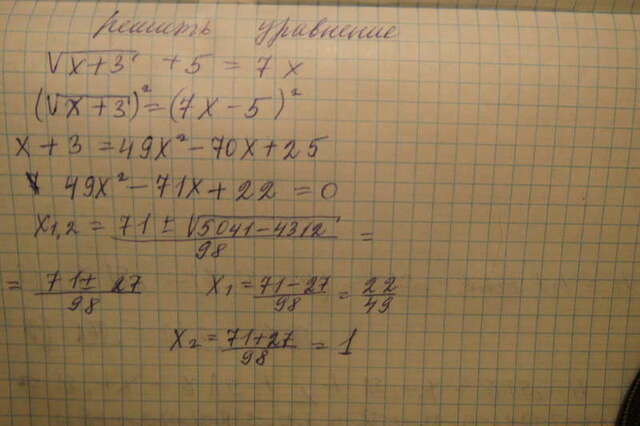 решить уравнение
√x+3 + 5 = 7x
(√x+3)² = (7x-5)²
x+3 = 49x² - 70x + 25
49x² - 71x + 22 = 0
x₁,₂ = 71 ± √5041-4312 / 98 =
= 71 ± 27 / 98 x₁ = 71-27 / 98 = 22 / 49
x₂ = 71+27 / 98 = 1